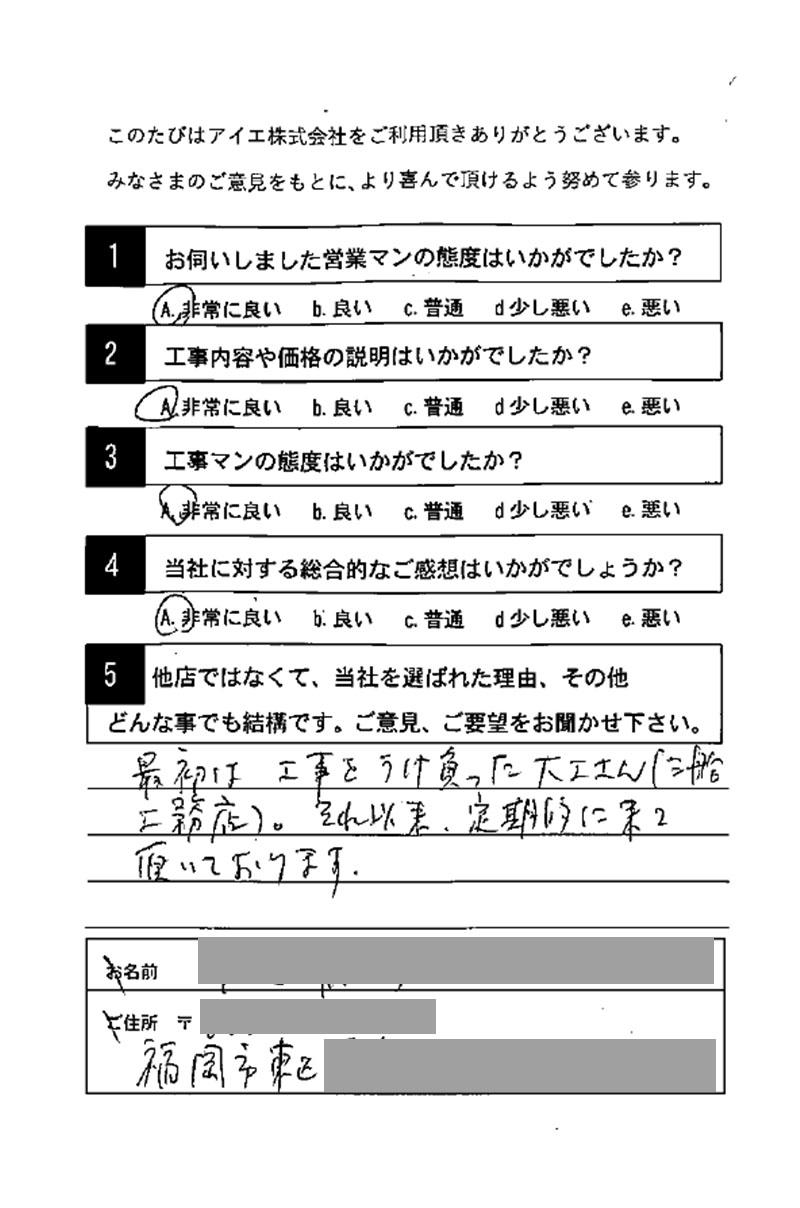 このたびはアイエ株式会社をご利用頂きありがとうございます。
みなさまのご意見をもとに、より喜んで頂けるよう努めて参ります。
1 お伺いしました営業マンの態度はいかがでしたか？
A. 非常に良い b. 良い c. 普通 d 少し悪い e. 悪い
2 工事内容や価格の説明はいかがでしたか？
A. 非常に良い b. 良い c. 普通 d 少し悪い e. 悪い
3 工事マンの態度はいかがでしたか？
A. 非常に良い b. 良い c. 普通 d 少し悪い e. 悪い
4 当社に対する総合的なご感想はいかがでしょうか？
A. 非常に良い b. 良い c. 普通 d 少し悪い e. 悪い
5 他店ではなくて、当社を選ばれた理由、その他
どんな事でも結構です。ご意見、ご要望をお聞かせ下さい。
最初は 工事をうけ負った大工さん(三船
工務店)。それ以来、定期的に来て
頂いております.
お名前
ご住所 〒
福岡市東区